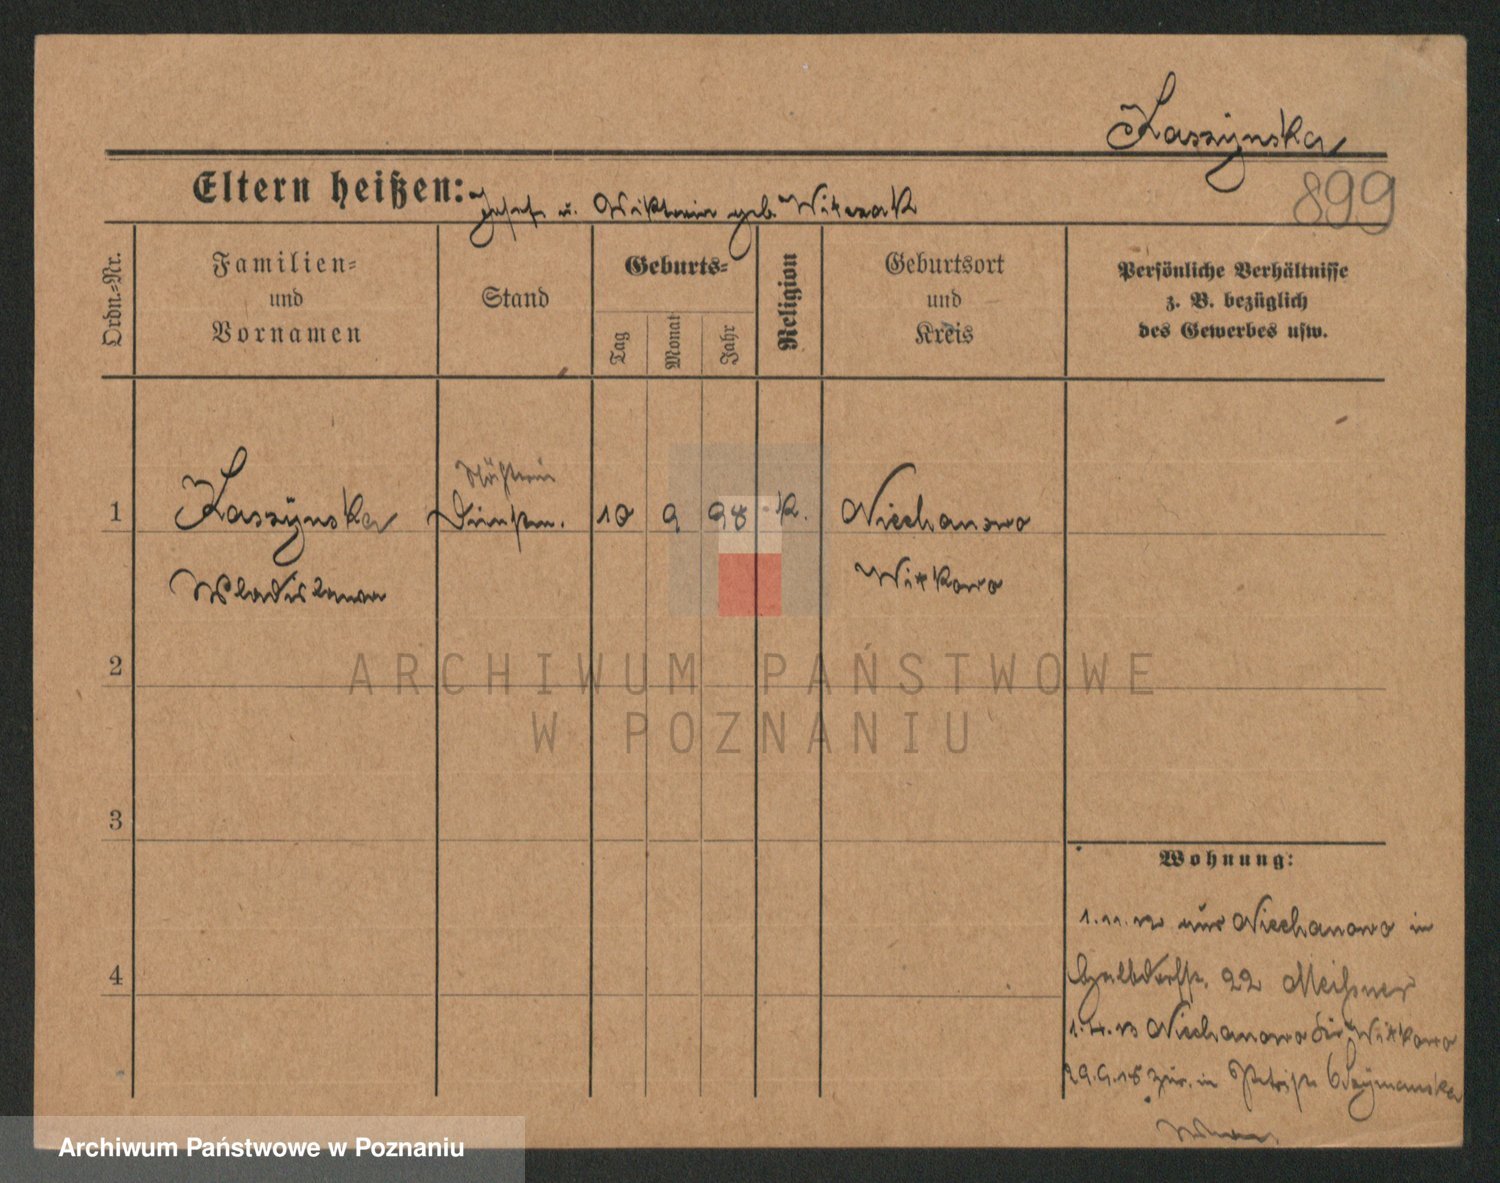 Kaszÿnska
899
Eltern heißen: Josef u. Viktoria geb. Witczak
Ordn.-Nr.
Familien- und Vornamen
Stand
Geburts-
Tag
Monat
Jahr
Religion
Geburtsort und Kreis
Persönliche Verhältnisse z. B. bezüglich des Gewerbes usw.
Näherin
1 Kaszÿnska 10 9 98 k. Niechanowo
Wladislawa Witkowo
2
3
4
Wohnung:
1.11.12 aus Niechanowo in
22 Meißner
1.4.13 Niechanowo Kr. Witkowo
29.9.18 zur. in Szÿmanska
ARCHIWUM PAŃSTWOWE
W POZNANIU
Archiwum Państwowe w Poznaniu